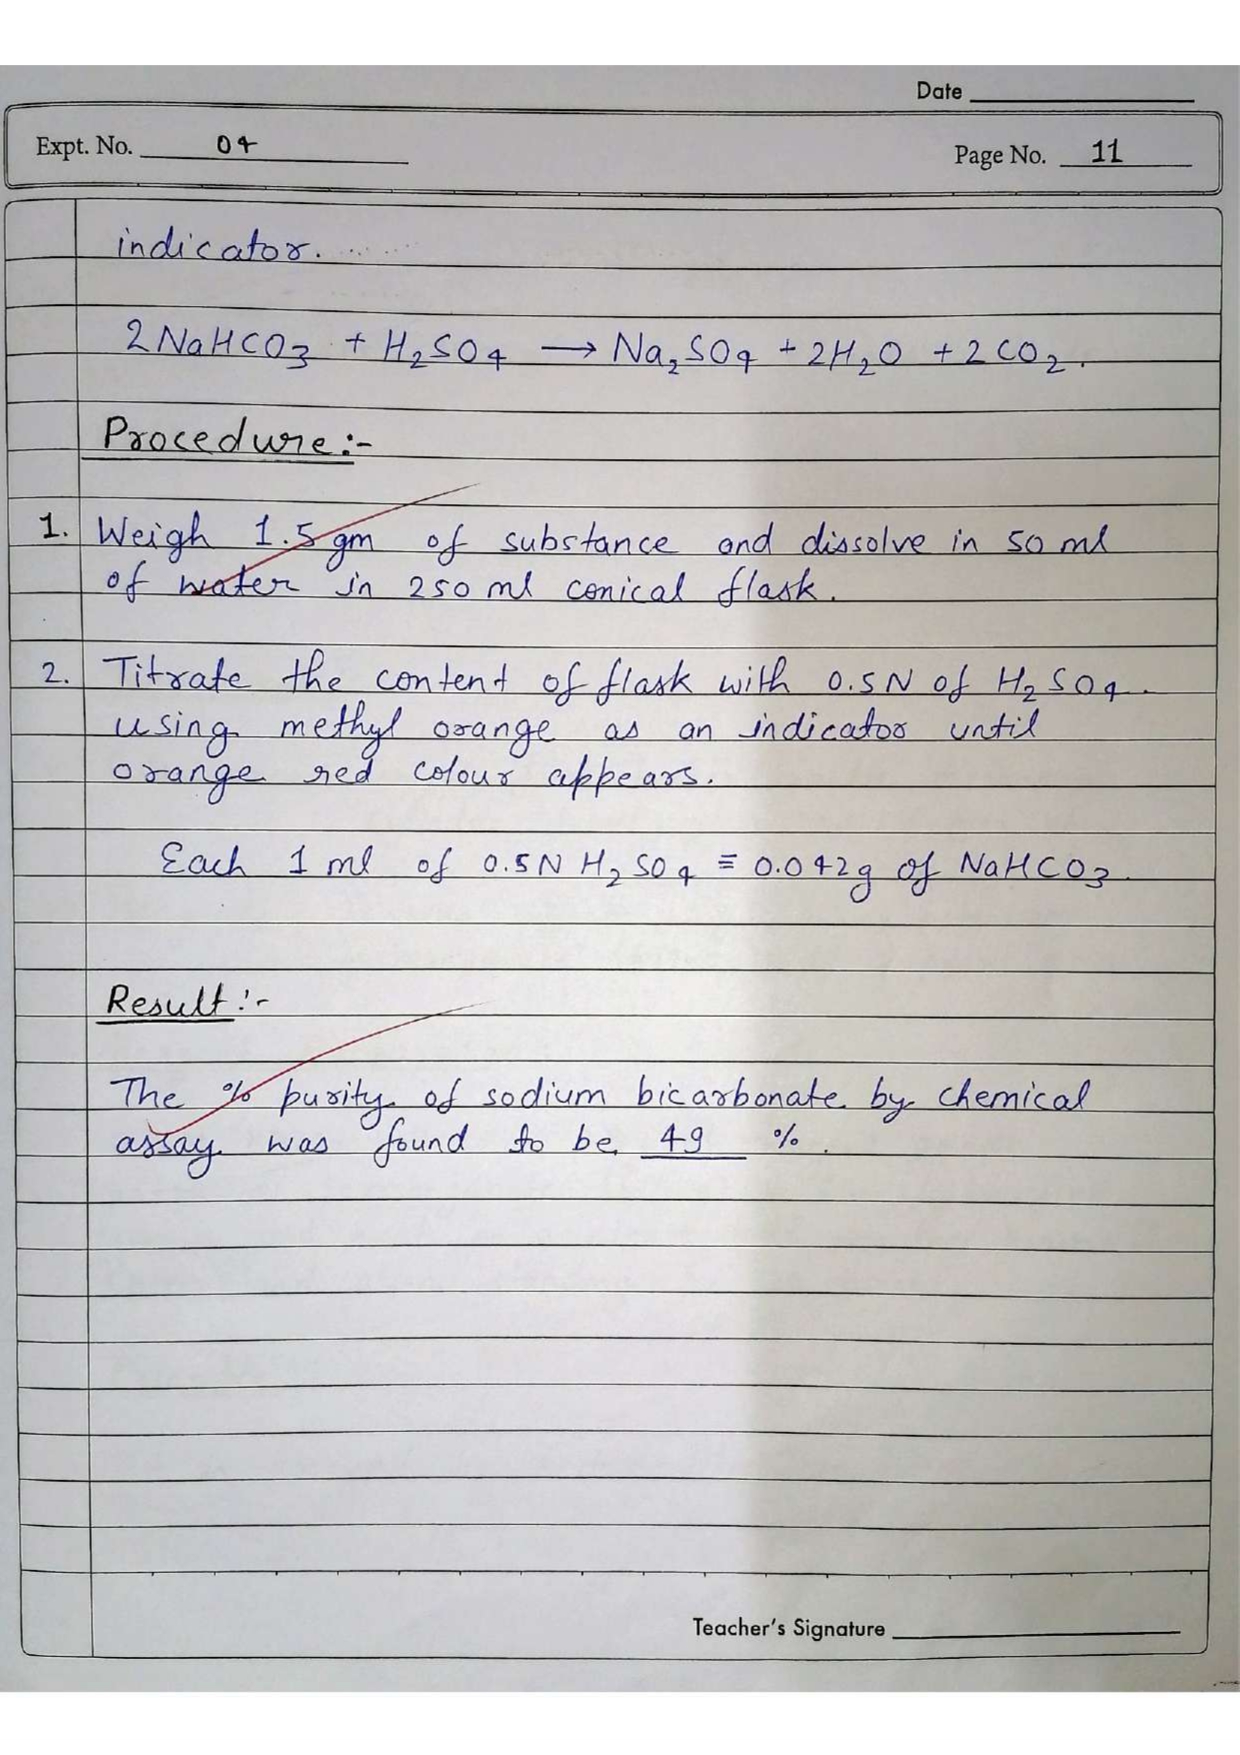 Date
Expt. No. 04
Page No. 11
indicator.
2NaHCO3 + H2SO4 → Na2SO4 + 2H2O + 2CO2.
Procedure:-
1. Weigh 1.5 gm of substance and dissolve in 50 ml
of water in 250 ml conical flask.
2. Titrate the content of flask with 0.5N of H2SO4.
using methyl orange as an indicator until
orange red colour appears.
Each 1 ml of 0.5N H2SO4 ≡ 0.042g of NaHCO3.
Result:-
The % purity of sodium bicarbonate by chemical
assay was found to be 49 %.
Teacher's Signature